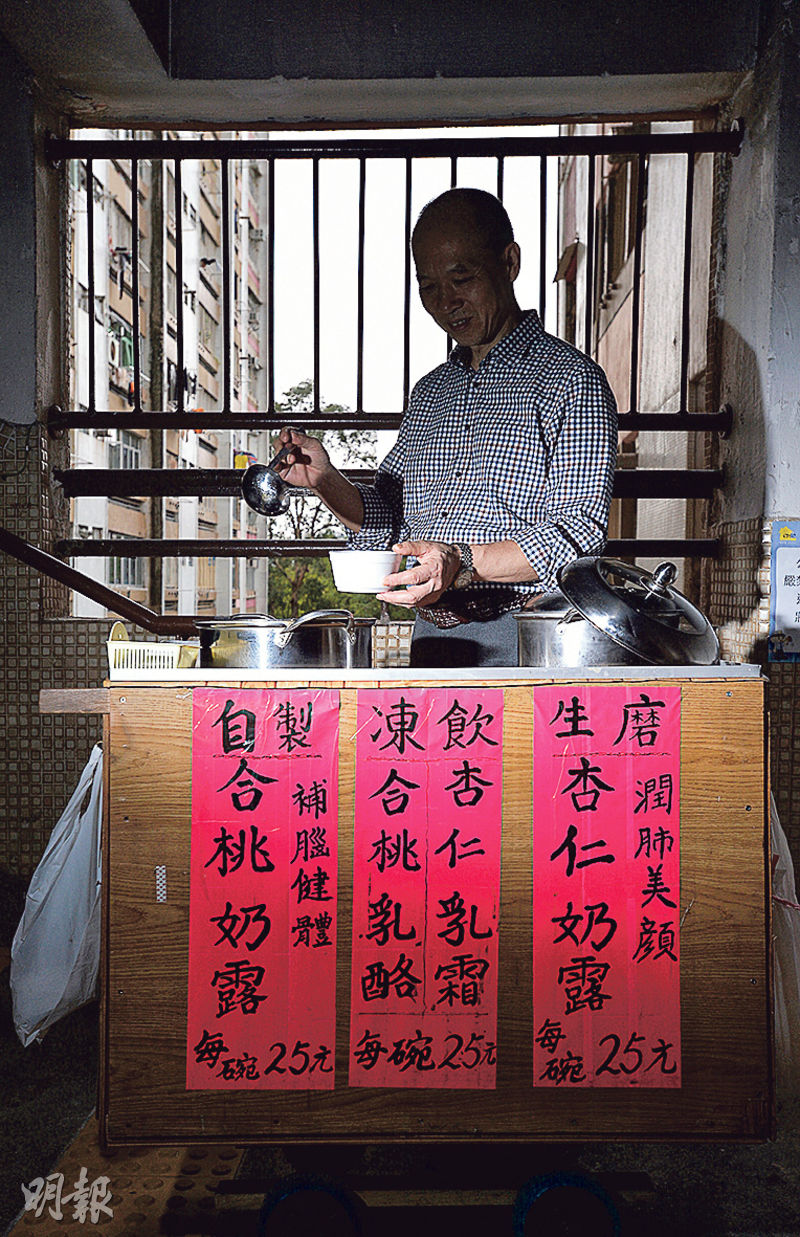 自製
合桃奶露
補腦健體
每碗25元
凍飲
合桃乳酪
杏仁乳霜
每碗25元
生磨
杏仁奶露
潤肺美顏
每碗25元
明報